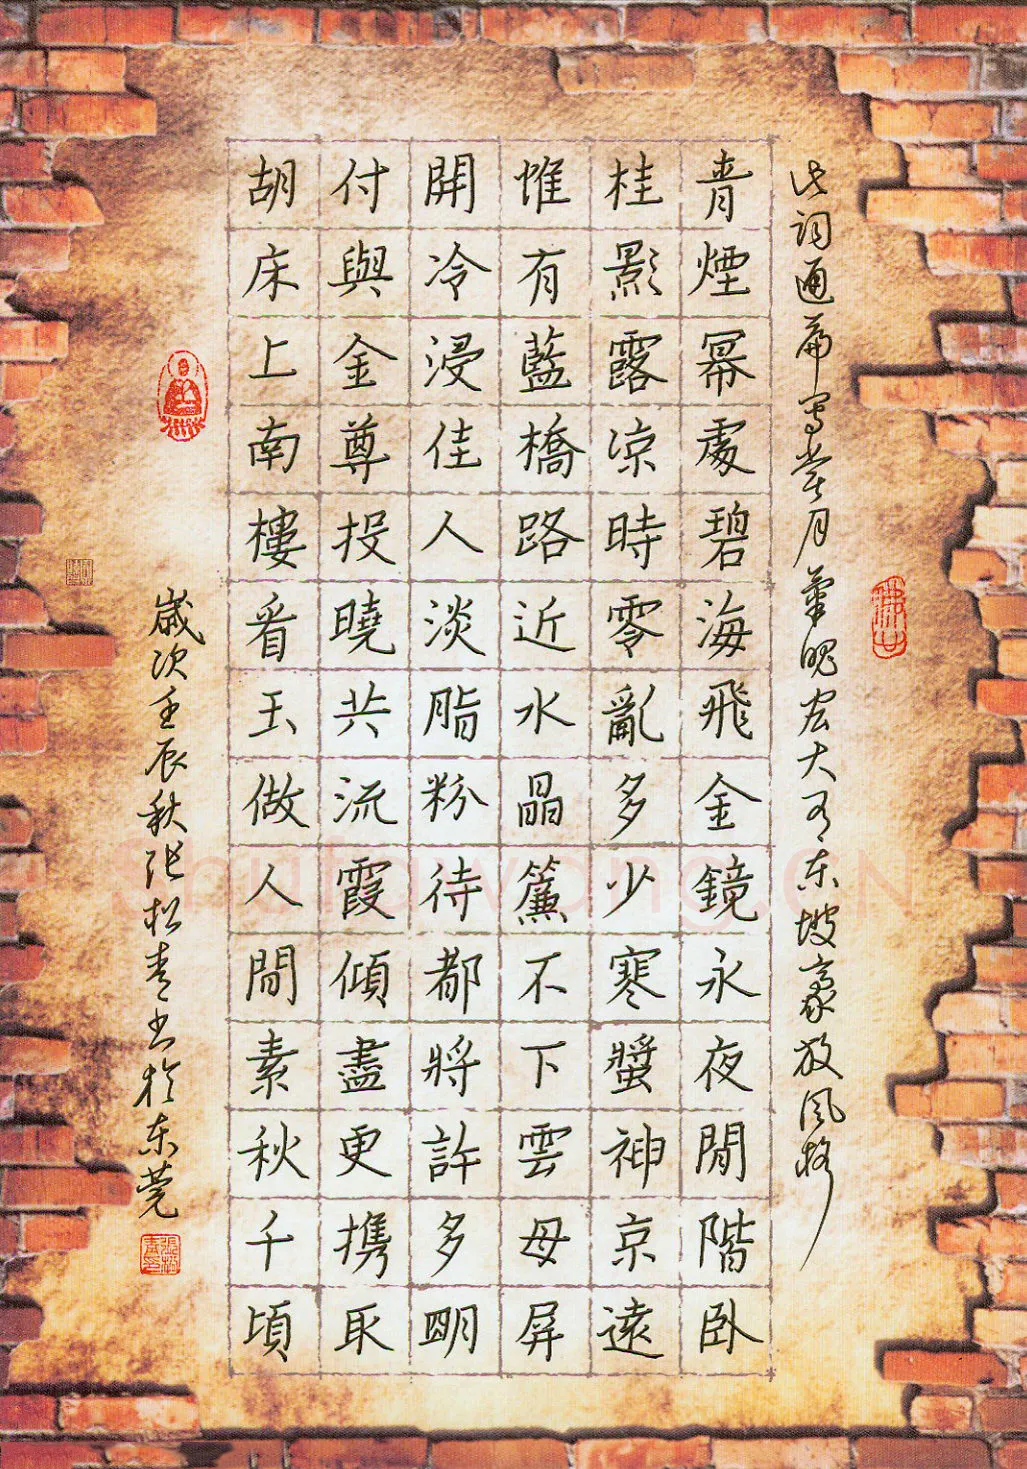 此词通篇写赏月笔魄宏大有东坡豪放风格
青煙幂處碧海飛金鏡永夜閒階卧
桂影露凉時零亂多少寒螀神京遠
惟有藍橋路近水晶簾不下雲母屏
開冷浸佳人淡脂粉待都將許多明
付與金尊投曉共流霞傾盡更携取
胡床上南樓看玉做人間素秋千頃
歲次壬辰秋张松青书於东莞
shufawang.CN